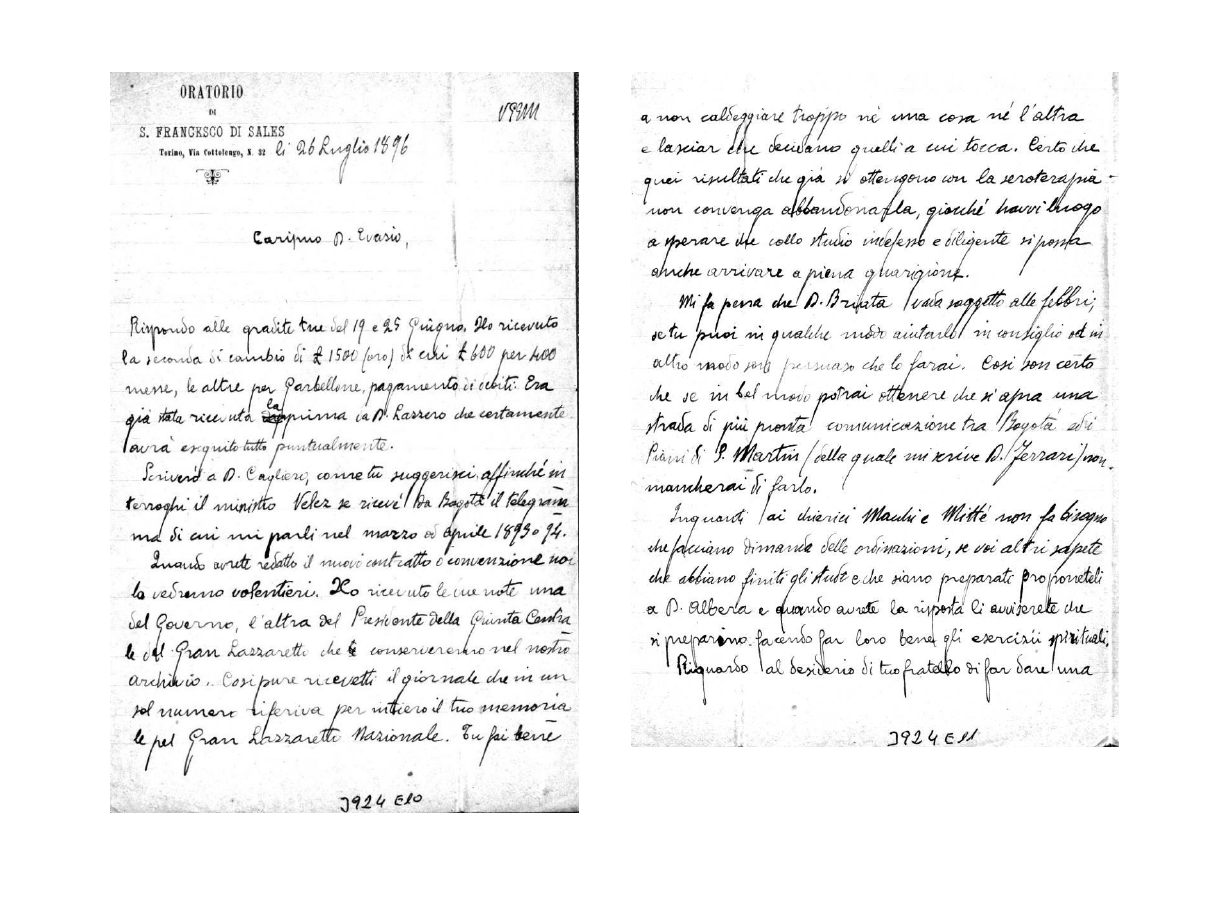 ORATORIO
DI
S. FRANCESCO DI SALES
Torino, Via Cottolengo, N. 32 li 26 Luglio 1896
Carissmo D. Evasio,
Rispondo alle gradite tue del 19 e 25 Giugno. Ho ricevuto
la seconda di cambio di £ 1500 (oro) di cui £ 600 per 400
messe, le altre per Garbellone, pagamento di debiti. Era
già stata ricevuta la prima da D. Lazzero che certamente
avrà eseguito tutto puntualmente.
Scriverò a D. Cagliero, come tu suggerisci, affinché in
terroghi il ministro Velez se ricevé da Bogotà il telegram
ma di cui mi parli nel marzo od aprile 1893 o 94.
Quando avrete redatto il nuovo contratto o convenzione noi
lo vedremo volentieri. Ho ricevuto le due note una
del Governo, l'altra del Presidente della Giunta Centra
le del Gran Lazzaretto che conserveremo nel nostro
archivio. Così pure ricevetti il giornale che in un
sol numero riferiva per intiero il tuo memoria
le pel Gran Lazzaretto Nazionale. Tu fai bene
J924 E10
a non caldeggiare troppo né una cosa né l'altra
e lasciar che decidano quelli a cui tocca. Certo che
quei risultati che già si ottengono con la seroterapia
non convenga abbandonarla, giacché havvi luogo
a sperare che collo studio indefesso e diligente si possa
anche arrivare a piena guarigione.
Mi fa pena che D. Briata vada soggetto alle febbri;
se tu puoi in qualche modo aiutarlo in consiglio od in
altro modo son persuaso che lo farai. Così son certo
che se in bel modo potrai ottenere che si apra una
strada di più pronta comunicazione tra Bogotà ed i
Piani di S. Martin (della quale mi scrive D. Ferrari) non
mancherai di farlo.
Inquanti ai chierici Maudi e Mitté non fa bisogno
che facciano dimanda delle ordinazioni, se voi altri sapete
che abbiano finiti gli studi e che siano preparati proponeteli
a D. Albera e quando avrete la risposta li avviserete che
si preparino facendo far loro bene gli esercizii spirituali.
Riguardo al desiderio di tuo fratello di far dare una
J924 E11